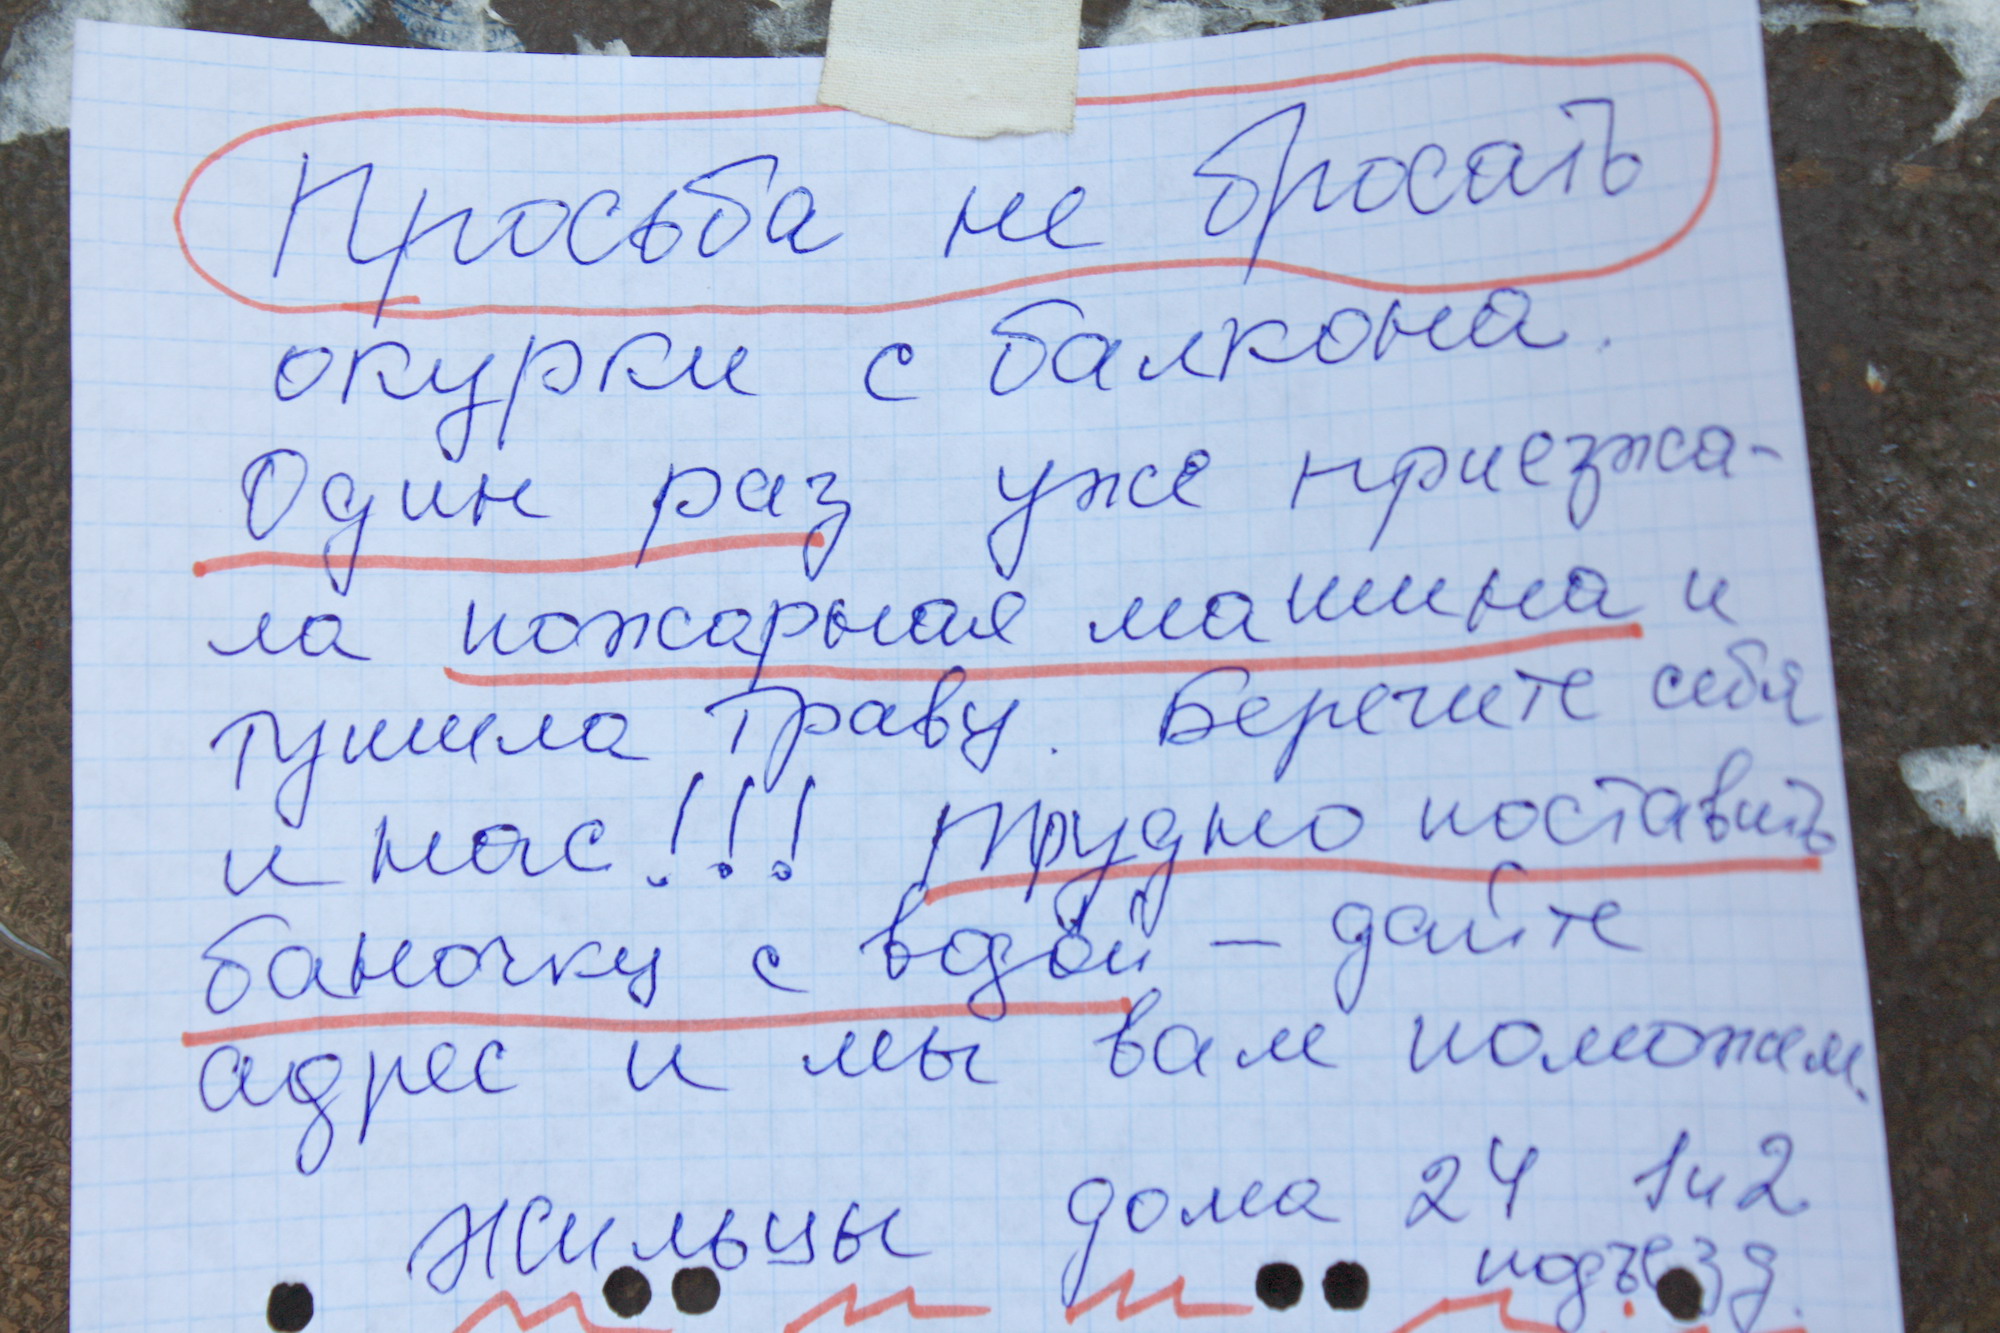 Просьба не бросать
окурки с балкона.
Один раз уже приезжа-
ла пожарная машина и
тушила траву. Берегите себя
и нас!!! Трудно поставить
баночку с водой – дайте
адрес и мы вам поможем.
Жильцы дома 24 1и2
подъезд.